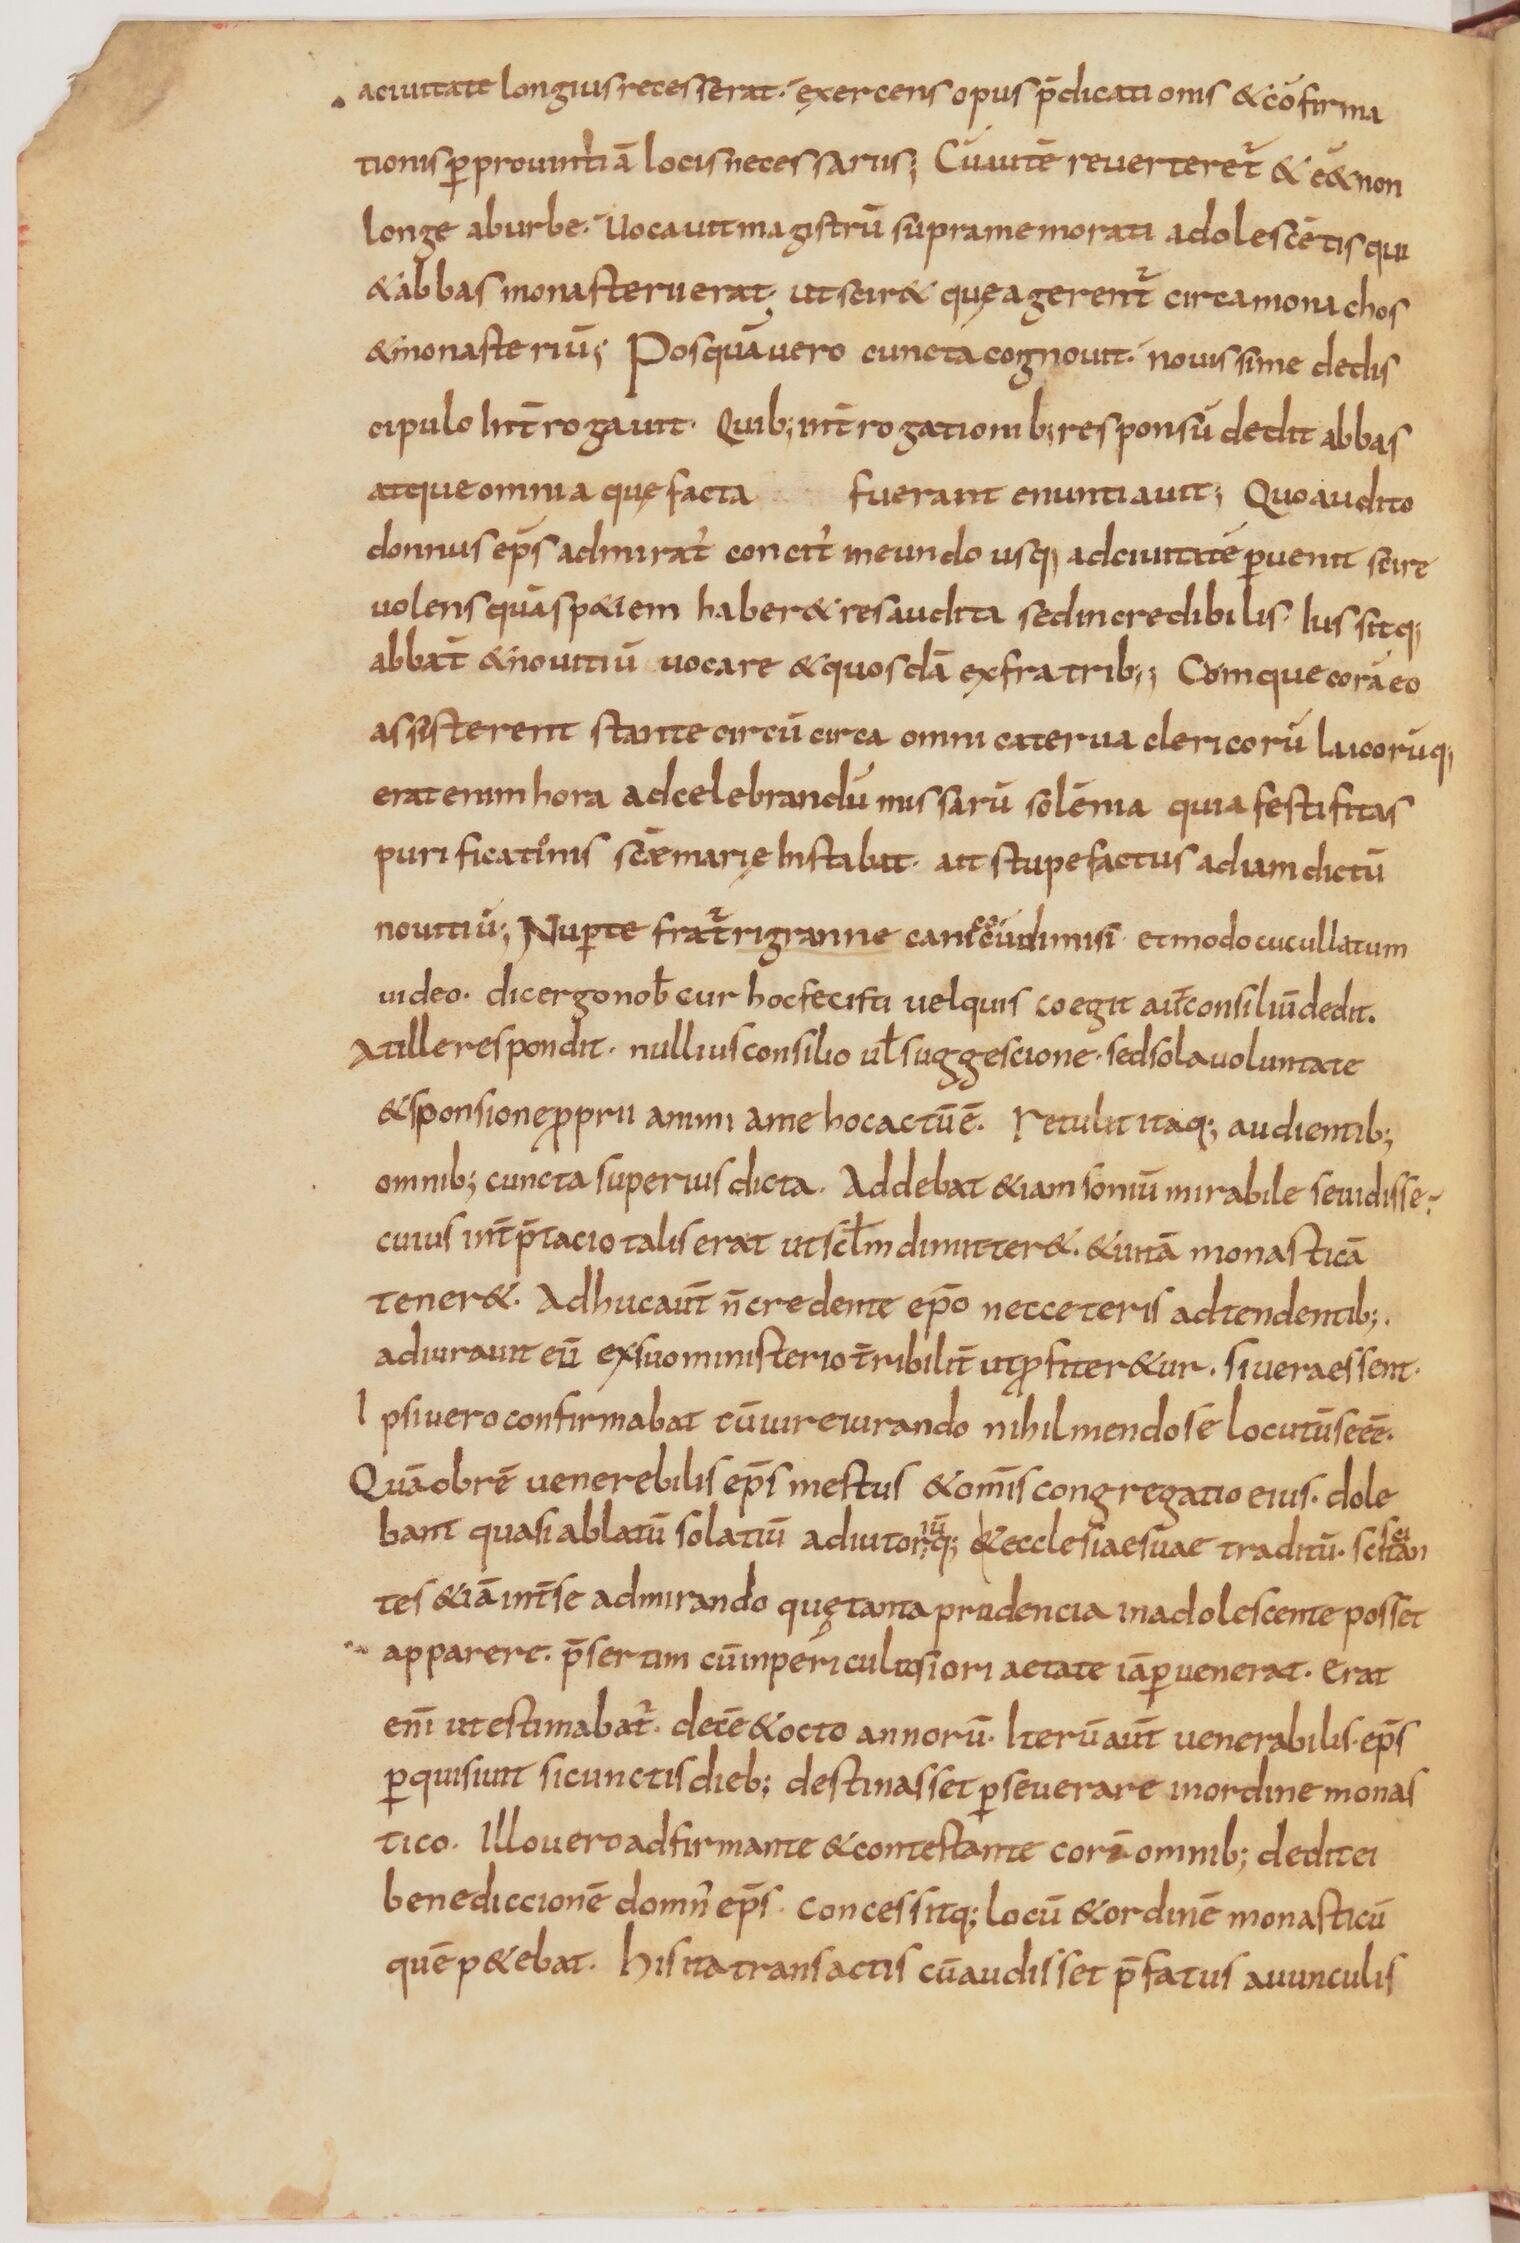 aciuitate longius recesserat· exercens opus p̄dicationis &cōfirma
tionis ꝑ prouintiā locis necessariis; Cūautē reuerteret᷑ & eēt non
longe aburbe· Uocauit magistrū supramemorati adolescētis qui
& abbas monasterii erat, ut scir& quę agerent᷑ circa monachos
& monasteriū; Posquā uero cuncta cognouit· nouissime dedis
cipulo int̄rogauit· Quib; int̄rogationib; responsū dedit abbas
atque omnia quę facta fuerant enuntiauit; Quo audito
domnus ep̄s admirat᷑ concit᷑ ineundo usq; adciuitatē ꝑuenit scire
uolens quā sp&iem haber& res audita sed incredibilis· Iussitq;
abbat̄ & nouitiū uocare & quosdā exfratrib;; Cumque corā eo
assisterent stante circū circa omni caterua clericorū laicorūq;
erat enim hora adcelebrandū missarū solēnia quia festiuitas
purificationis scē marię Instabat· ait stupefactus adiamdictū
nouitiū; Nuper te frat᷑ rigranne canoēcū dimisi· et modo cucullatum
uideo· dic ergo nob̄ cur hoc fecisti uel quis coegit aut̄ consiliū dedit.
At ille respondit· nullius consilio ul̄ suggescione· sed sola uoluntate
& sponsione proprii animi ame hoc actū ē. Retulit itaq; audientib;
omnib; cuncta superius dicta. Addebat &iam soniū mirabile se uidisse·
cuius int̄p̄tacio talis erat ut scl̄m dimitter&. & uitā monasticā
tener&. Adhuc aut̄ n̄ credente ep̄o nec ceteris adtendentib;.
adiurauit eū exsuo ministerio t̄ribilit̄ ut ꝓfiter&ur. si uera essent.
Ipsi uero confirmabat cū iureiurando nihil mendose locutū se eē.
Quāobrē uenerebilis ep̄s mestus & om̄is congregatio eius. dole
bant quasi ablatū solatiū adiutoriūq; & ecclesiae suae traditū. scisci tan
tes & iā int̄ se admirando quę tanta prudencia inadolescente posset
apparere. p̄sertim cū inpericulosiori aetate iā ꝑuenerat. Erat
eni̅ ut estimabat᷑. decē & octo annorū. Iterū aut̄ uenerabilis. ep̄s
ꝑquisiuit si cunctis dieb; destinasset ꝑseuerare inordine monas
tico. Illo uero adfirmante & contestante corā omnib; dedit ei
benediccionē domn̄ ep̄s. Concessitq; locū & ordinē monasticū
quē p&ebat. His ita transactis cū audisset p̄fatus auunculis